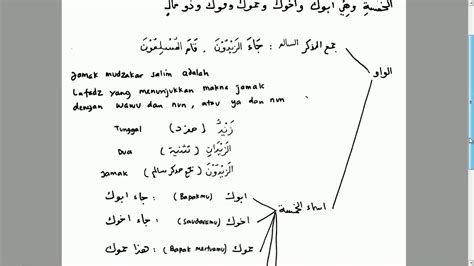 الخمسةِ وهي أبوك وأخوك وحموك وفوك وذو مالٍ
جمع المذكر السالم : جَاءَ الزَّيْدُوْنَ . قَامَ الْمُسْلِمُوْنَ
الواو
Jamak mudzakar salim adalah
Lafadz yang menunjukkan makna jamak
dengan wawu dan nun , atau ya dan nun
Tunggal ( مفرد ) زَيْدٌ
Dua ( تثنية ) الزَّيْدَانِ
Jamak ( جمع مذكر سالم ) الزَّيْدُوْنَ
اسماء الخمسة
ابوك ( Bapakmu ) : جاء ابوك
اخوك ( Saudaramu ) : جاء اخوك
حموك ( Bapak mertuamu ) : هذا حموك